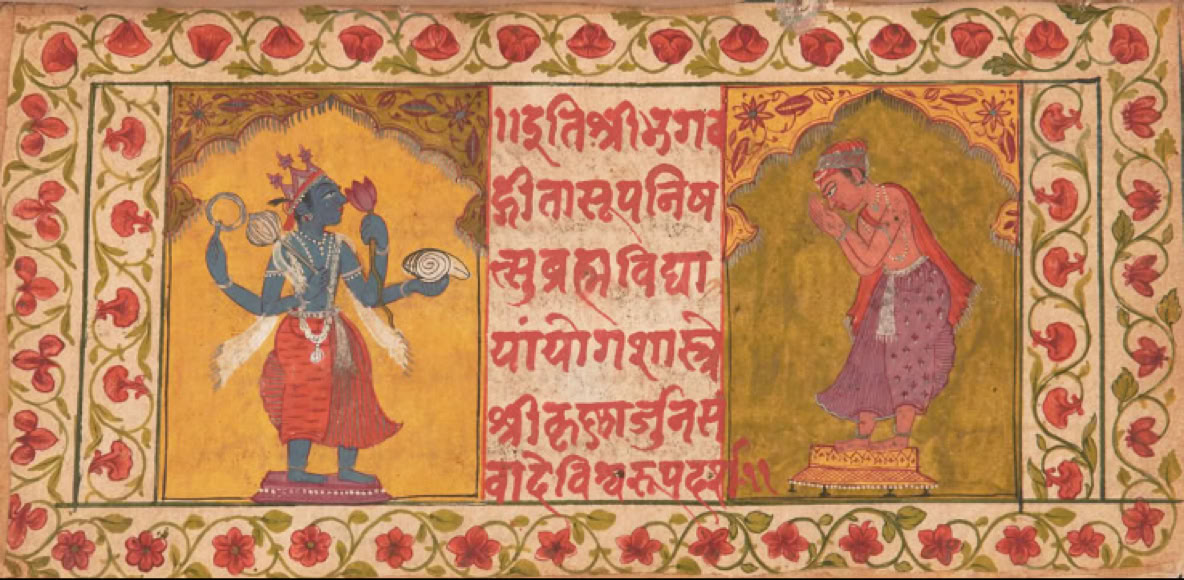 ॥इति श्रीभगव
द्गीतासूपनिष
त्सुब्रह्मविद्या
यांयोगशास्त्रे
श्रीकृष्णार्जुनसं
वादेविश्वरूपदर्श